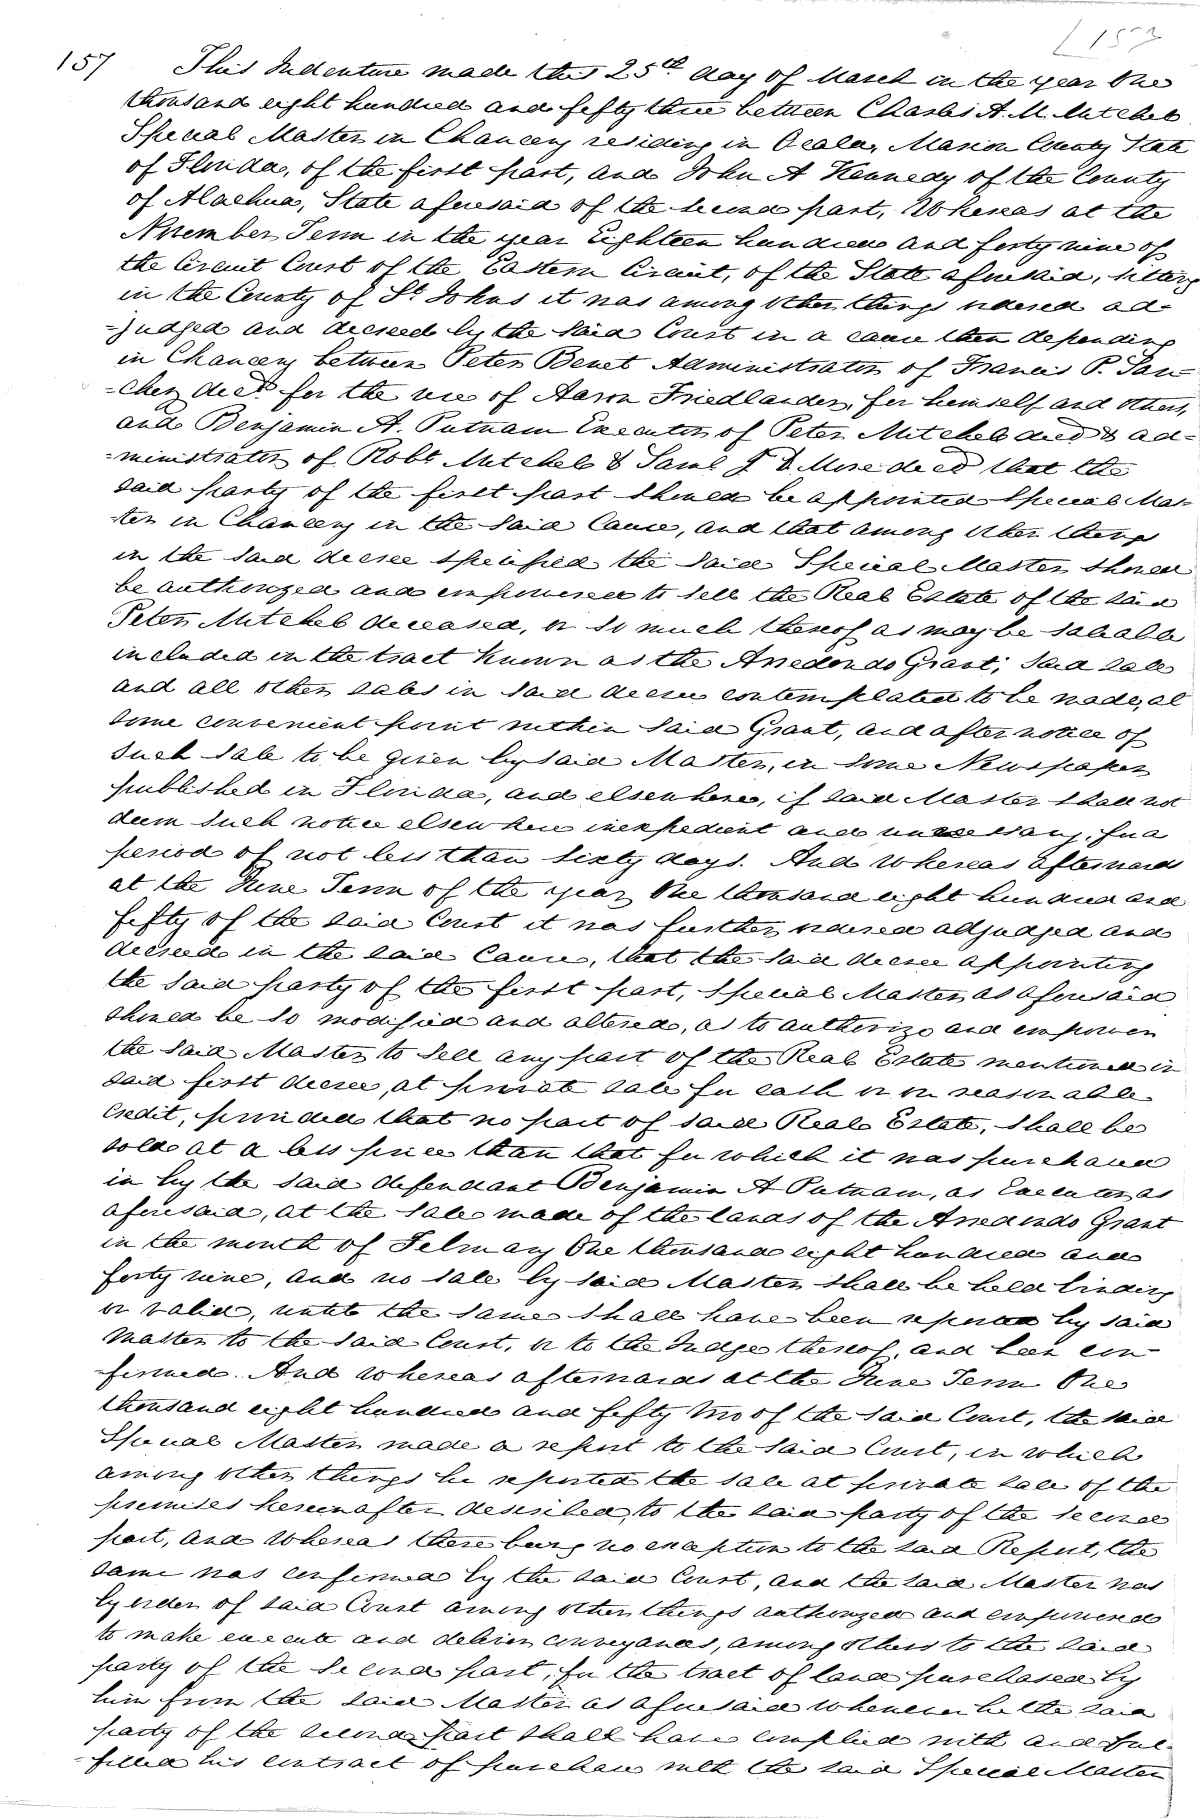 153
157 This Indenture made this 25th day of March in the year One
thousand eight hundred and fifty three between Charles A. M. Mitchel
Special Master in Chancery residing in Ocala, Marion County State
of Florida, of the first part, and John A Kennedy of the County
of Alachua, State aforesaid of the second part, Whereas at the
November Term in the year Eighteen hundred and forty nine of
the Circuit Court of the Eastern Circuit, of the State aforesaid, sitting
in the County of St. Johns it was among other things ordered ad-
-judged and decreed by the said Court in a cause then depending
in Chancery between Peter Benet Administrator of Francis P. San-
-chez decd. for the use of Aaron Friedlander, for himself and others,
and Benjamin A. Putnam Executor of Peter Mitchel decd & ad-
-ministrator of Robt Mitchel & Saml F B Morse decd that the
said party of the first part should be appointed Special Mas-
-ter in Chancery in the said Cause, and that among other things
in the said decree specified the said Special Master should
be authorized and empowered to sell the Real Estate of the said
Peter Mitchel deceased, or so much thereof as may be salable
included in the tract known as the Arredondo Grant; said sale
and all other sales in said decree contemplated to be made, at
some convenient point within said Grant, and after notice of
such sale to be given by said Master, in some Newspaper
published in Florida, and elsewhere, if said Master shall not
deem such notice elsewhere inexpedient and unnecessary, for a
period of not less than sixty days. And whereas afterwards
at the June Term of the year One thousand eight hundred and
fifty of the said Court it was further ordered adjudged and
decreed in the said Cause, that the said decree appointing
the said party of the first part, Special Master as aforesaid
should be so modified and altered, as to authorize and empower
the said Master to sell any part of the Real Estate mentioned in
said first decree, at private sale for cash or on reasonable
credit, provided that no part of said Real Estate, shall be
sold at a less price than that for which it was purchased
in by the said defendant Benjamin A Putnam, as Executor as
aforesaid, at the sale made of the lands of the Arredondo Grant
in the month of February One thousand eight hundred and
forty nine, and no sale by said Master shall be held binding
or valid, until the same shall have been reported by said
Master to the said Court, or to the Judge thereof, and been con-
-firmed. And whereas afterwards at the June Term One
thousand eight hundred and fifty two of the said Court, the said
Special Master made a report to the said Court, in which
among other things he reported the sale at private sale of the
premises hereinafter described, to the said party of the second
part, and whereas there being no exception to the said Report, the
same was confirmed by the said Court, and the said Master was
by order of said Court among other things authorized and empowered
to make execute and deliver conveyances, among others to the said
party of the second part, for the tract of land purchased by
him from the said Master as aforesaid whenever he the said
party of the second part shall have complied with and ful-
-filled his contract of purchase with the said Special Master